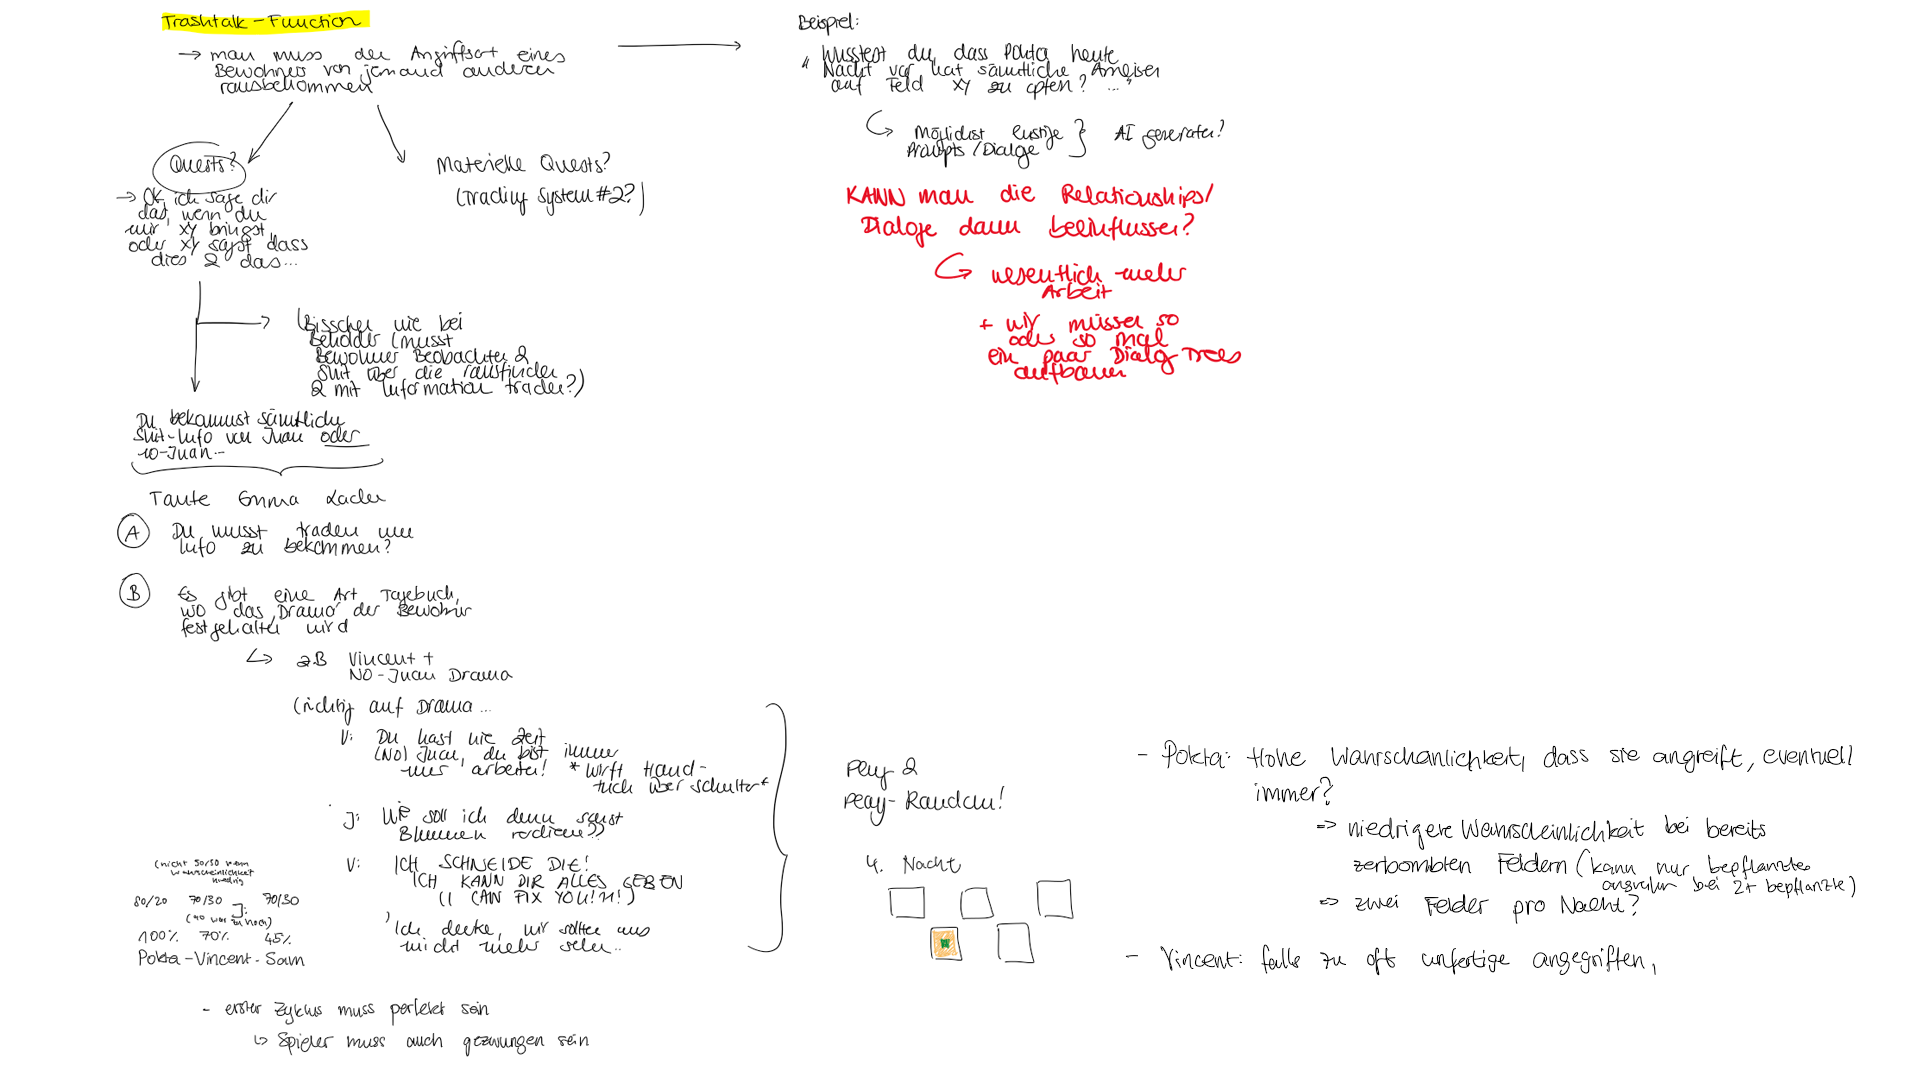 Trashtalk-Function
→ man muss den Angriffsort eines
Bewohners von jemand anderen
rausbekommen
Quests?
→ Ok, ich sage dir
das, wenn du
mir xy bringst,
oder xy sagst dass
dies & das...
Materielle Quests?
(Trading System #2?)
(Bisschen wie bei
Beholder (musst
Bewohner Beobachten &
Shit über die rausfinden
& mit Information traden?)
Du bekommst sämtliche
Shit-Info von Juan oder
no-Juan..
Tante Emma Laden
A Du musst traden um
Info zu bekommen?
B Es gibt eine Art Tagebuch,
wo das Drama der Bewohner
festgehalten wird
zB Vincent +
NO-Juan Drama
(richtig auf Drama...
V: Du hast nie Zeit
(NO) Juan, du bist immer
nur arbeiten! *wirft Hand-
tuch über Schulter*
J: Wie soll ich denn sonst
Blumen verdienen??
V: ICH SCHNEIDE DIE!
ICH KANN DIR ALLES GEBEN
(I CAN FIX YOU!!!)
Ich denke, wir sollten uns
nicht mehr sehn..
(nicht 50/50 wenn
Wahrscheinlichkeit
niedrig
80/20 70/30 70/30
(40 war zu hoch)
100% 70% 45%
Pokta - Vincent - Sam
- erster Zyklus muss perfekt sein
↳ Spieler muss auch gezwungen sein
Beispiel:
"Wusstest du, dass Pokta heute
Nacht vor hat sämtliche Ameisen
auf Feld xy zu opfern? ..."
Möglichst lustige } AI generaten?
Prompts/Dialoge
KANN man die Relationships/
Dialoge dann beeinflussen?
wesentlich mehr
Arbeit
+ wir müssen so
oder so mal
ein paar Dialog Trees
aufbauen
Play 2
Play-Random!
4. Nacht
- Pokta: Hohe Wahrschanlichkeit, dass sie angreift, eventuell
immer?
=> niedrigere Wahrscheinlichkeit bei bereits
zerbombten Feldern (kann nur bepflanzte
auswählen bei 2+ bepflanzte)
=> zwei Felder pro Nacht?
- Vincent: falls zu oft unfertige angegriffen,